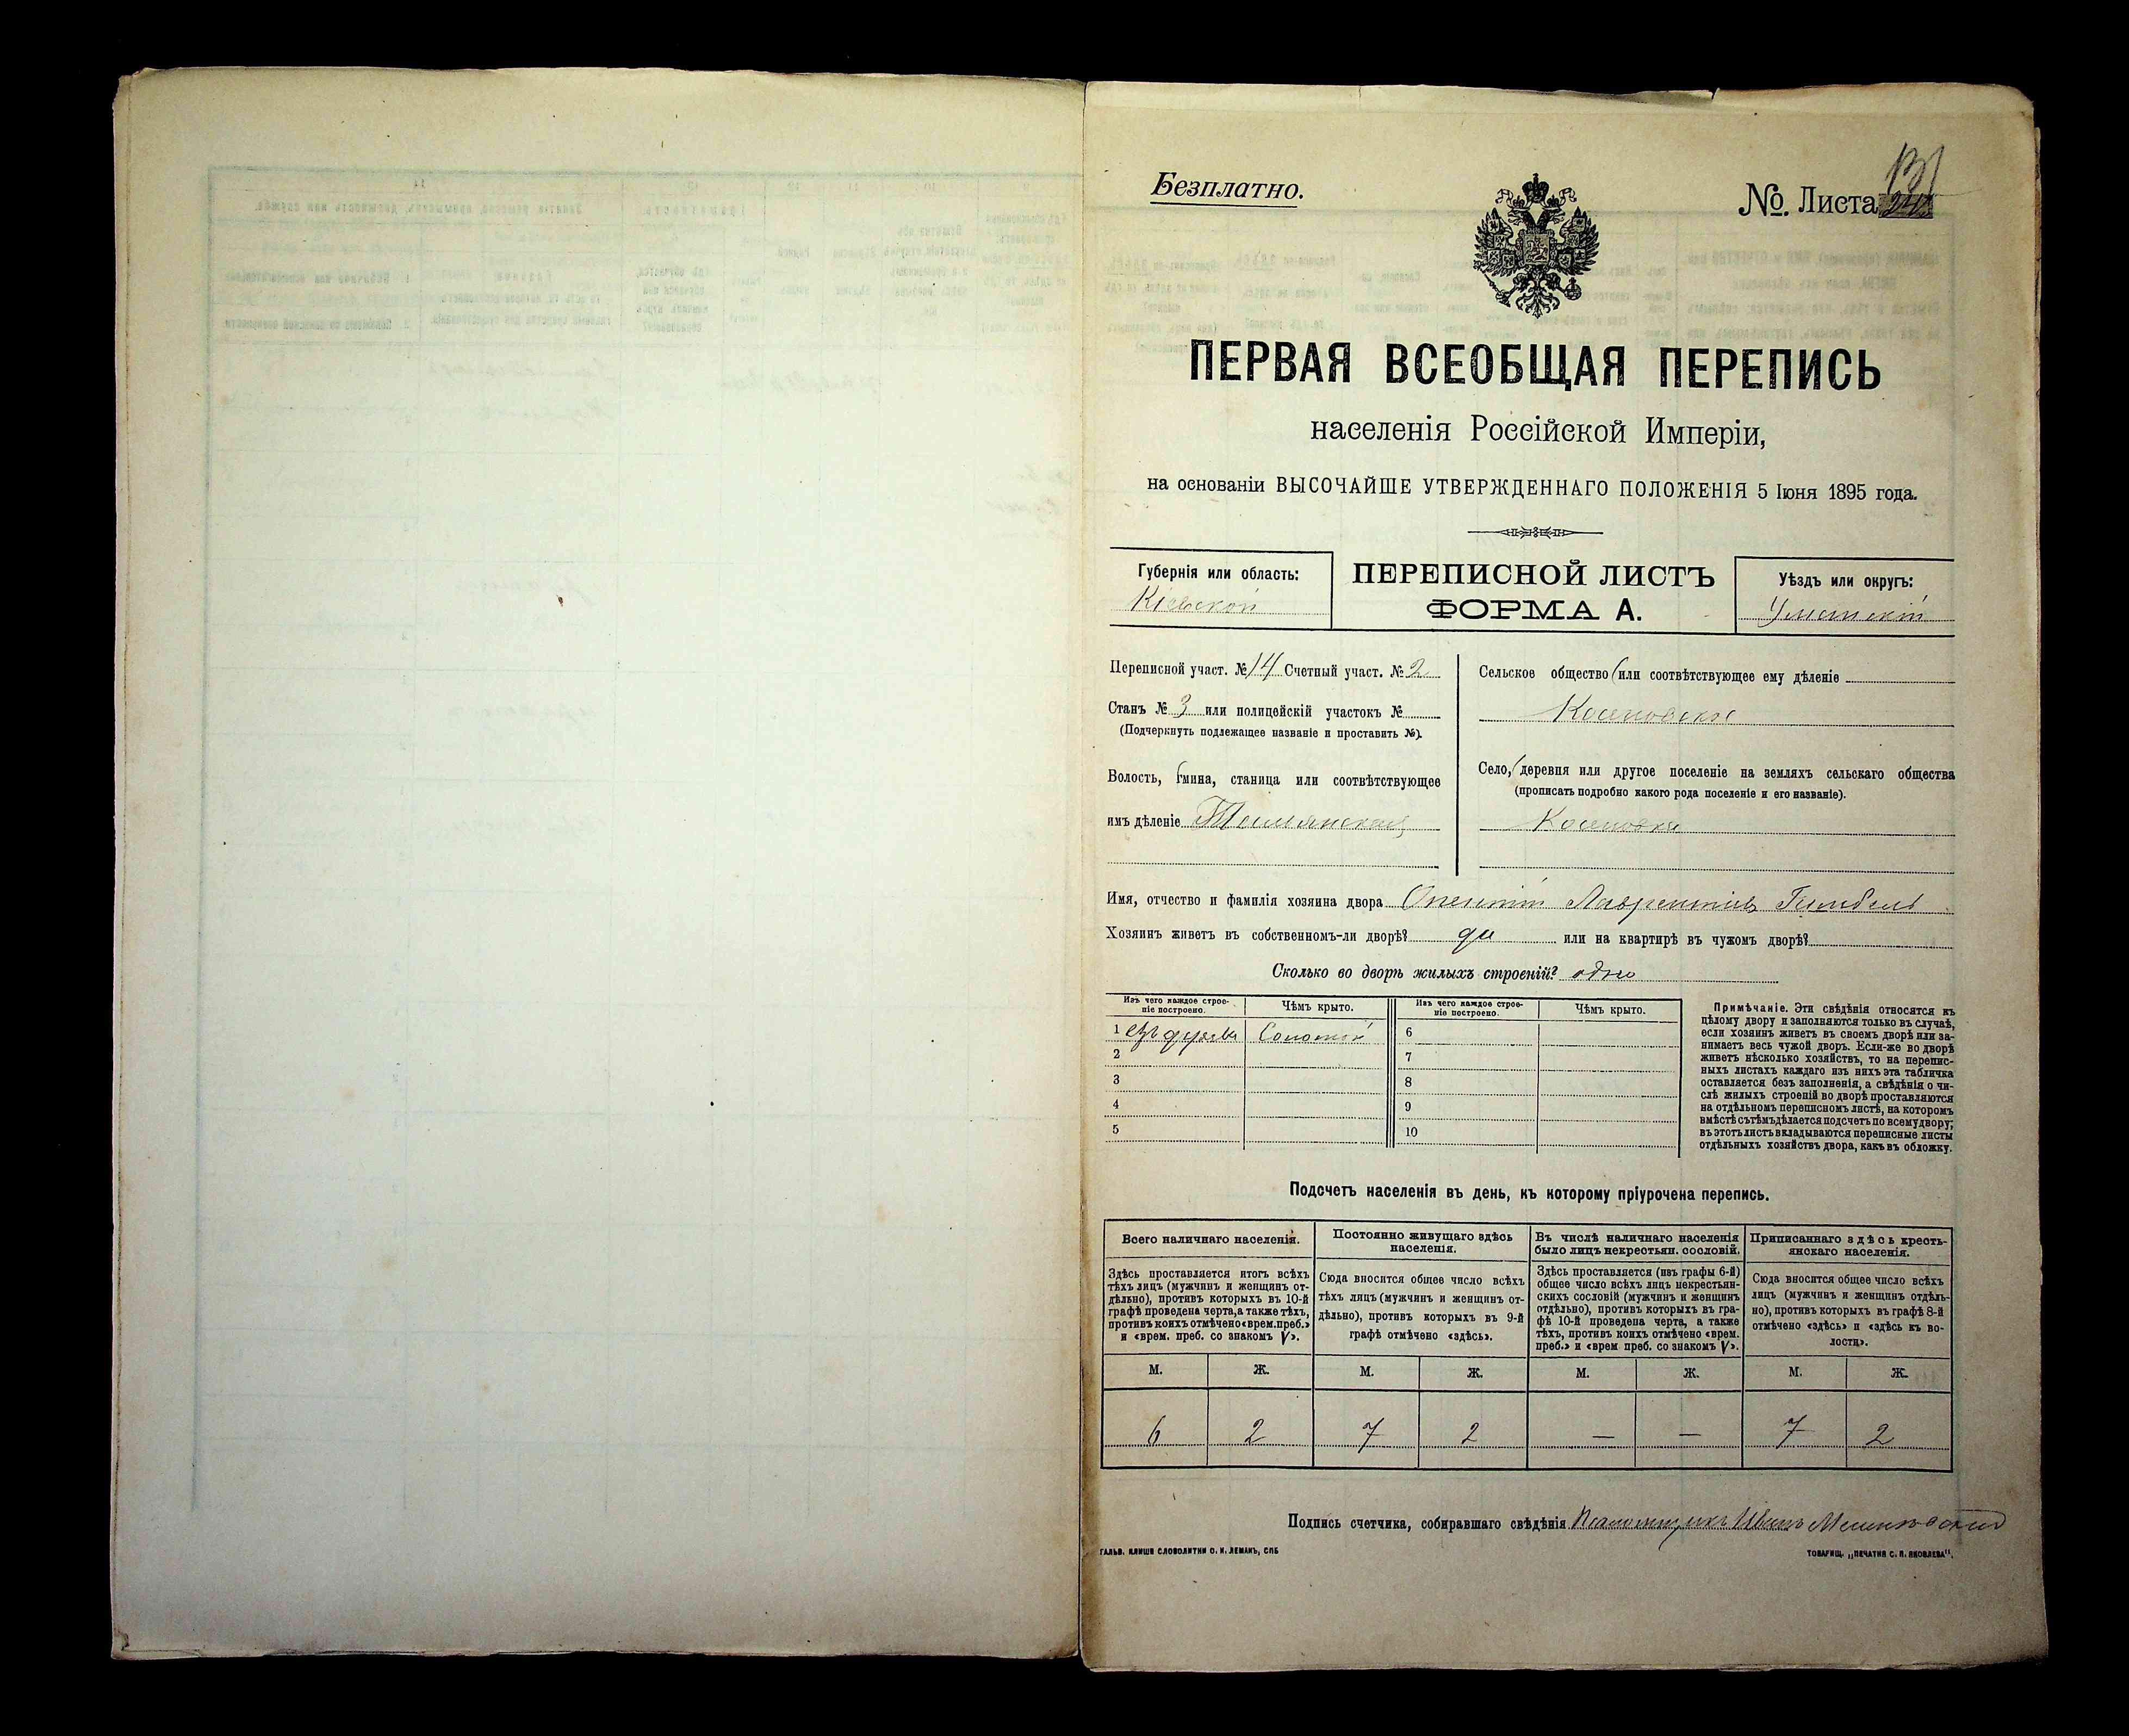 Безплатно.
№ Листа
ПЕРВАЯ ВСЕОБЩАЯ ПЕРЕПИСЬ
населенія Россійской Имперіи,
на основаніи ВЫСОЧАЙШЕ УТВЕРЖДЕННАГО ПОЛОЖЕНІЯ 5 Іюня 1895 года.
Губернія или область:
Кіевской
ПЕРЕПИСНОЙ ЛИСТЪ
ФОРМА А.
Уѣздъ или округъ:
Уманскій
Переписной участ. № 14 Счетный участ. № 2
Станъ № 3 или полицейскій участокъ №
(Подчеркнуть подлежащее названіе и проставить №).
Волость, гмина, станица или соотвѣтствующее
имъ дѣленіе
Сельское общество (или соотвѣтствующее ему дѣленіе
Косеновское
Село, (деревня или другое поселеніе на земляхъ сельскаго общества
(прописать подробно какого рода поселеніе и его названіе).
Косеновка
Имя, отчество и фамилія хозяина двора Лаврентіевъ
Хозяинъ живетъ въ собственномъ-ли дворѣ? да или на квартирѣ въ чужомъ дворѣ?
Сколько во дворѣ жилыхъ строеній? одно
Изъ чего каждое строеніе построено.
Чѣмъ крыто.
Изъ чего каждое строеніе построено.
Чѣмъ крыто.
1 изъ дерева Соломой
2
3
4
5
6
7
8
9
10
Примѣчаніе. Эти свѣдѣнія относятся къ
цѣлому двору и заполняются только въ случаѣ,
если хозяинъ живетъ въ своемъ дворѣ или за-
нимаетъ весь чужой дворъ. Если-же во дворѣ
живетъ нѣсколько хозяйствъ, то на перепис-
ныхъ листахъ каждаго изъ нихъ эта табличка
оставляется безъ заполненія, а свѣдѣнія о чи-
слѣ жилыхъ строеній во дворѣ проставляются
на отдѣльномъ переписномъ листѣ, на которомъ
вмѣстѣ съ тѣмъ дѣлается подсчетъ по всему двору;
въ этотъ листъ вкладываются переписные листы
отдѣльныхъ хозяйствъ двора, какъ въ обложку.
Подсчетъ населенія въ день, къ которому пріурочена перепись.
Всего наличнаго населенія.
Здѣсь проставляется итогъ всѣхъ
тѣхъ лицъ (мужчинъ и женщинъ от-
дѣльно), противъ которыхъ въ 10-й
графѣ проведена черта, а также тѣхъ,
противъ коихъ отмѣчено «врем. преб.»
и «врем. преб. со знакомъ V».
Постоянно живущаго здѣсь
населенія.
Сюда вносится общее число всѣхъ
тѣхъ лицъ (мужчинъ и женщинъ от-
дѣльно), противъ которыхъ въ 9-й
графѣ отмѣчено «здѣсь».
Въ числѣ наличнаго населенія
было лицъ некрестьян. сословій.
Здѣсь проставляется (изъ графы 6-й)
общее число всѣхъ лицъ некрестьян-
скихъ сословій (мужчинъ и женщинъ
отдѣльно), противъ которыхъ въ гра-
фѣ 10-й проведена черта, а также
тѣхъ, противъ коихъ отмѣчено «врем.
преб.» и «врем преб. со знакомъ V».
Приписаннаго здѣсь кресть-
янскаго населенія.
Сюда вносится общее число всѣхъ
лицъ (мужчинъ и женщинъ отдѣль-
но), противъ которыхъ въ графѣ 8-й
отмѣчено «здѣсь» и «здѣсь къ во-
лости».
М. Ж. М. Ж. М. Ж. М. Ж.
6 2 7 2 — — 7 2
Подпись счетчика, собиравшаго свѣдѣнія Псаломщикъ Иванъ
ГАЛЬВ. КЛИШЕ СЛОВОЛИТНИ О. И. ЛЕМАНЪ, СПБ
ТОВАРИЩ. „ПЕЧАТНЯ С. П. ЯКОВЛЕВА".